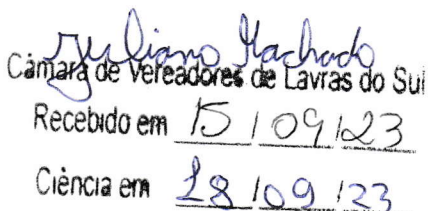 Juliano Machado
Câmara de Vereadores de Lavras do Sul
Recebido em 15/09/23
Ciência em 18/09/23